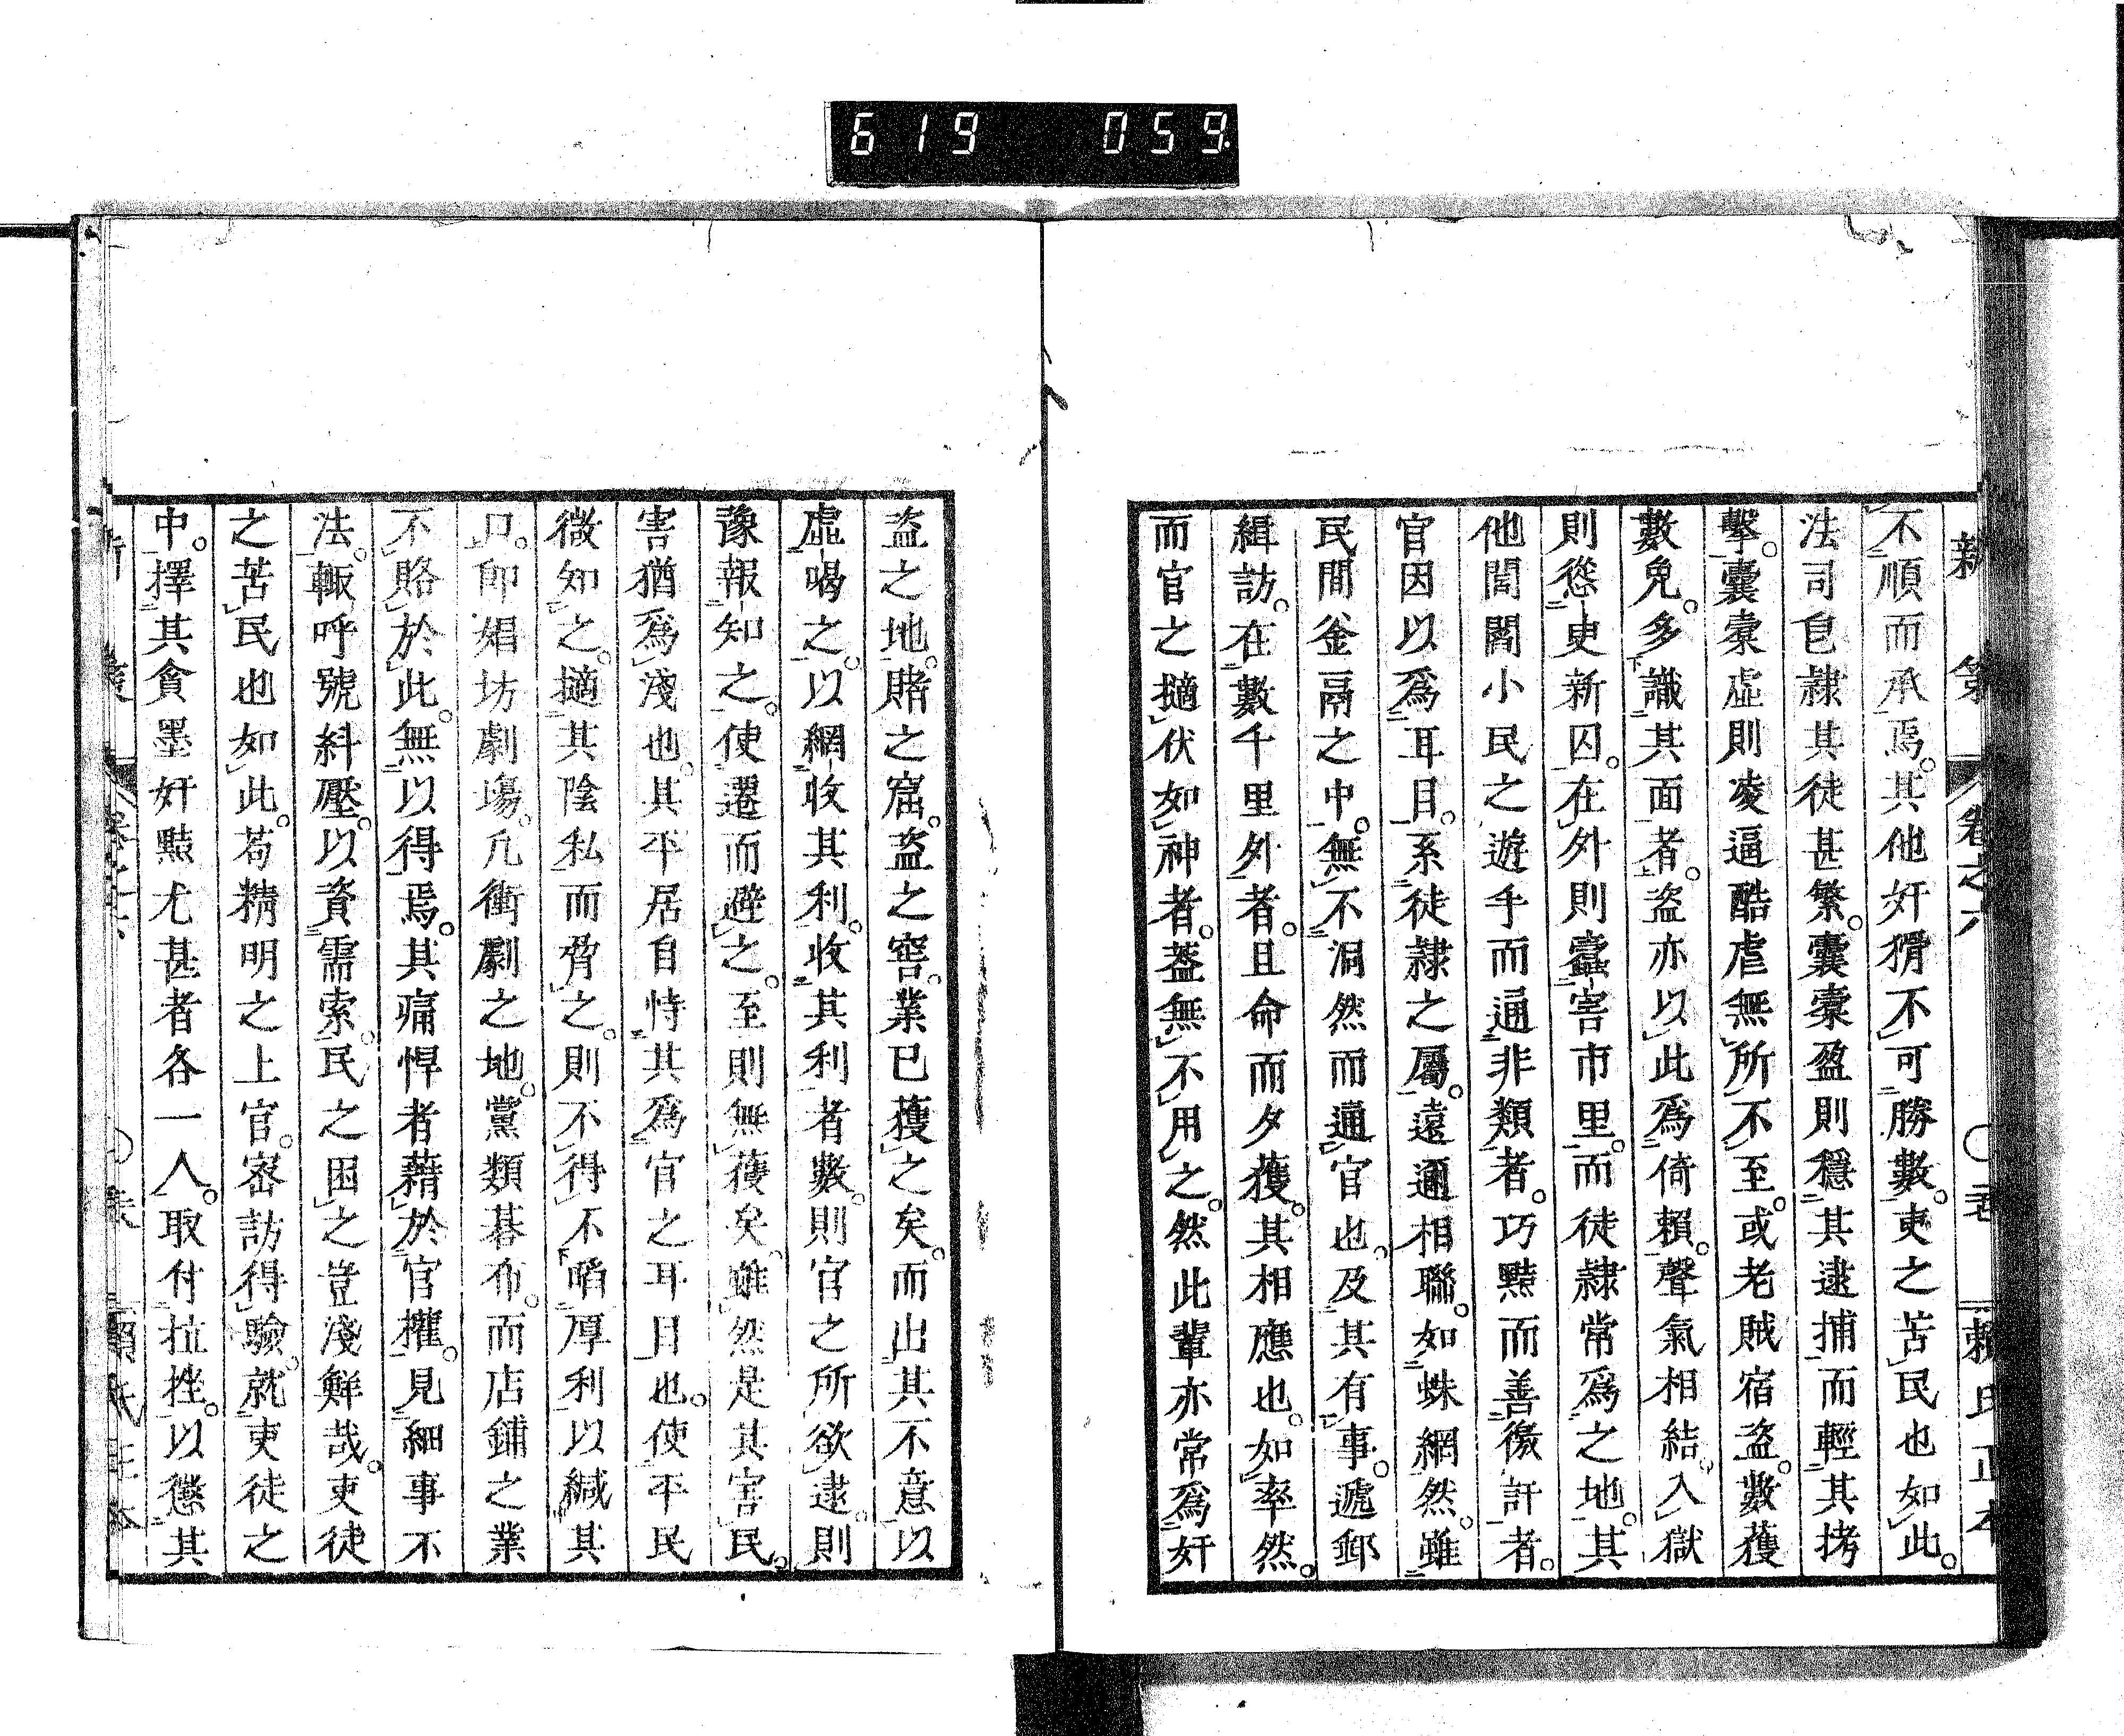 619 059
新策 卷之六 賴氏正本
不順而承焉。其他奸猾不可勝數。吏之苦民也如此。
法司皀隷其徒甚繁。囊橐盈則穩其逮捕而輕其拷
擊。囊橐虛則凌逼酷虐無所不至。或老賊宿盜。數獲
數免。多識其面者。盜亦以此爲倚賴。聲氣相結。入獄
則慫吏新囚。在外則蠹害市里。而徒隷常爲之地。其
他閭閻小民之遊手而通非類者。巧黠而善徼訐者。
官因以爲耳目。系徒隷之屬。遠邇相聯。如蛛網然。雖
民間釜鬲之中。無不洞然而通官也。及其有事。遞郵
緝訪。在數千里外者。且命而夕獲。其相應也。如率然。
而官之擿伏如神者。蓋無不用之。然此輩亦常爲奸
盜之地。賭之窟。盜之窖。業已獲之矣。而出其不意以
虛喝之。以網收其利。收其利者數。則官之所欲逮。則
豫報知之。使遷而避之。至則無獲矣。雖然是其害民。
害猶爲淺也。其平居自恃其爲官之耳目也。使平民
微知之。擿其陰私而脅之。則不得不啗厚利以緘其
口。卽娼坊劇場。凡衝劇之地。黨類碁布。而店鋪之業
不賂於此。無以得焉。其痛悍者藉於官權。見細事不
法。輙呼號糾壓。以資需索。民之困之豈淺鮮哉。吏徒
之苦民也如此。苟精明之上官。密訪得驗。就吏徒之
中。擇其貪墨奸黠尤甚者各一人。取付拉挫。以懲其